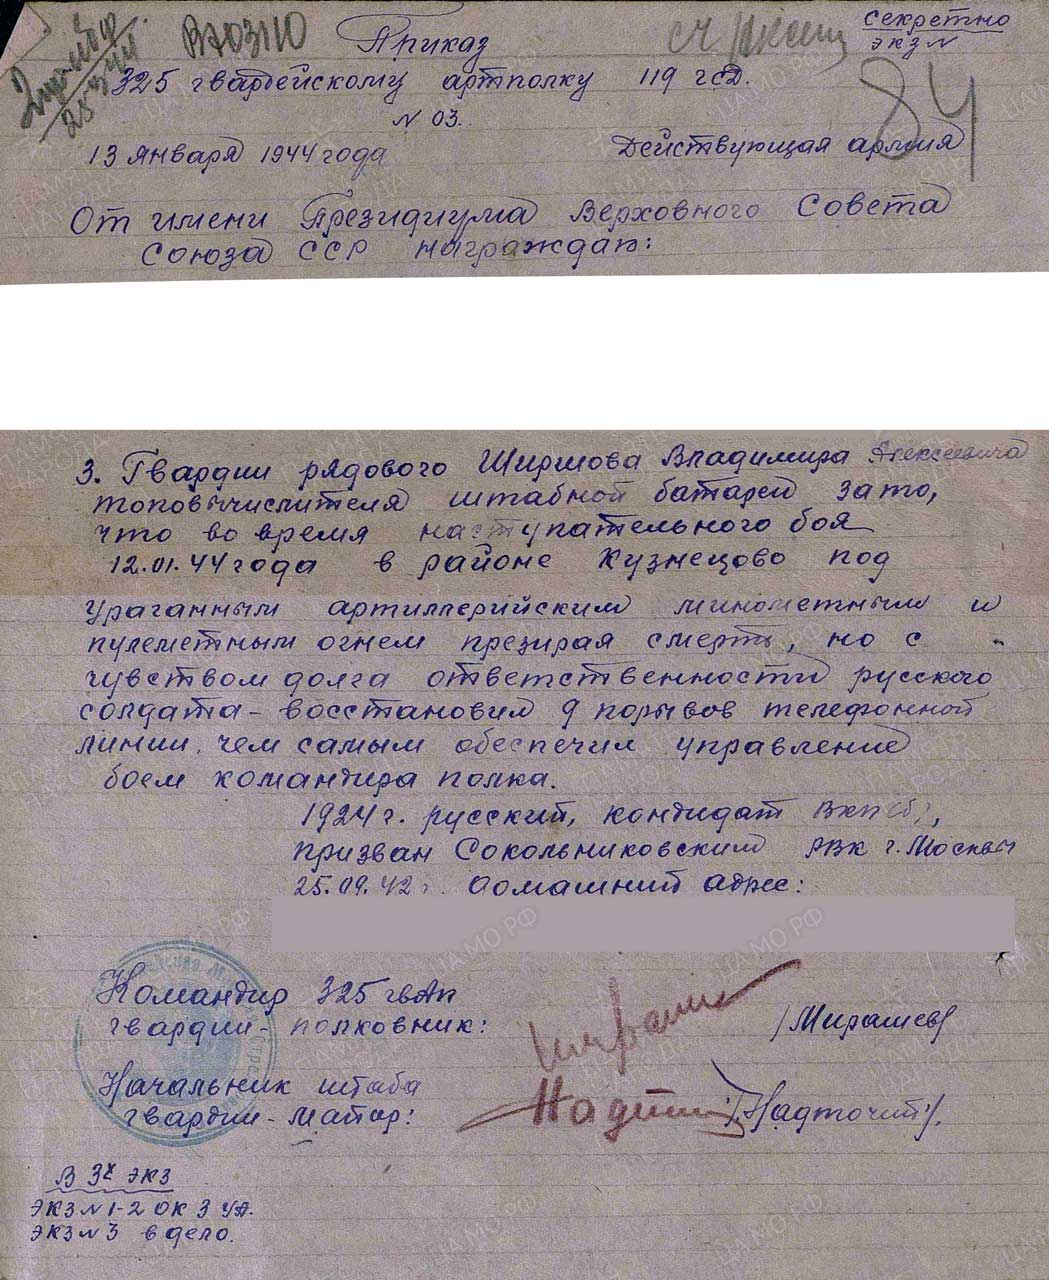 Секретно
экз N
ВХ0310
84
Приказ
325 гвардейскому артполку 119 гсд.
N 03.
13 января 1944 года Действующая армия
От имени Президиума Верховного Совета
Союза ССР награждаю:
3. Гвардии рядового Ширшова Владимира Алексеевича
топовычислителя штабной батареи за то,
что во время наступательного боя
12.01.44 года в районе Кузнецово под
ураганным артиллерийским минометным и
пулеметным огнем презирая смерть, но с
чувством долга ответственности русского
солдата - восстановил 9 порывов телефонной
линии, чем самым обеспечил управление
боем командира полка.
1924 г. русский, кандидат ВКП(б),
призван Сокольниковским РВК г. Москвы
25.09.42 г. домашний адрес:
Командир 325 гвАп
гвардии - полковник: /Мирашев/
Начальник штаба
гвардии - майор: /Надточий/.
В 3х экз
экз N 1-2 ОК 3 УА.
экз N 3 в дело.